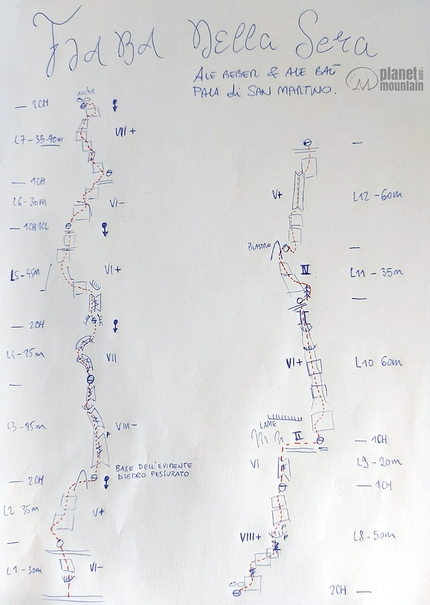 FIABA Della Sera
ALE BEBER & ALE BAÙ
PALA di SAN MARTINO.
planet
mountain
2CH
L7-35-40m
VII+
1CH
L6-30m
VI-
1CH 1CL
L5-45m
VI+
2CH
L4-25m
VII
L3-45m
VIII-
BASE DELL'EVIDENTE
DIEDRO FESSURATO
2CH
L2 35m
V+
L1-30m
VI-
V+
L12-60m
PILASTRO
IV
L11-35m
VI+
L10 60m
LAME
II
1CH
VI
L9-20m
1CH
VIII+
L8-50m
2CH